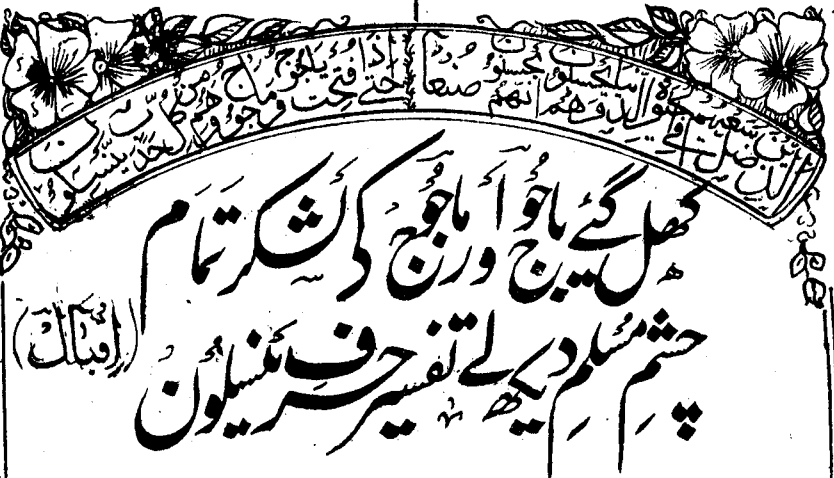 الذين ضل سعيهم في الحيوة الدنيا وهم يحسبون انهم يحسنون صنعا
حتى اذا فتحت ياجوج وماجوج وهم من كل حدب ينسلون
کھل گئے یاجوج اور ماجوج کے لشکر تمام
چشمِ مسلم دیکھ لے تفسیر حرفِ ینسلون
(اقبال)